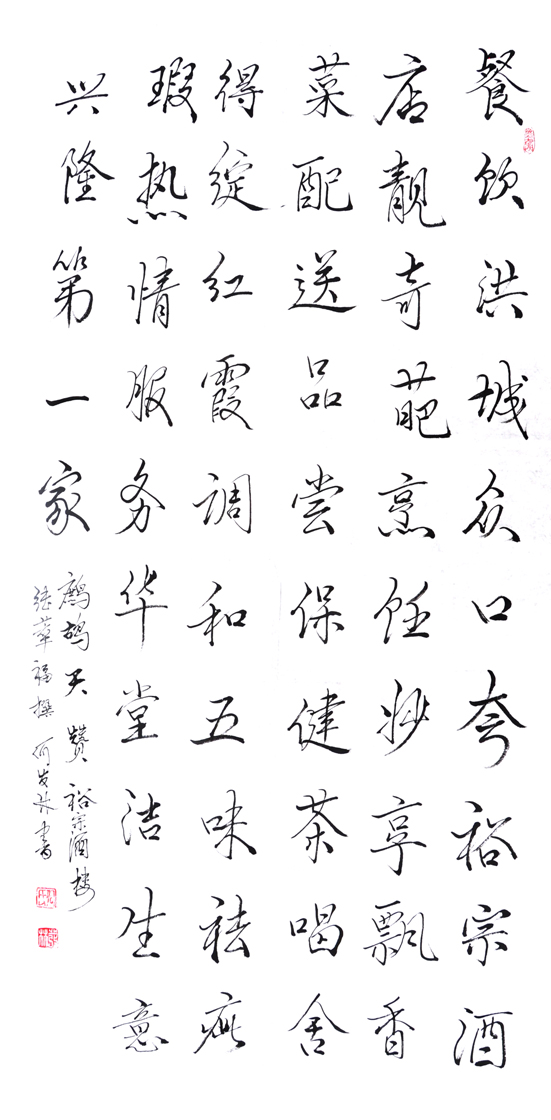 餐饮洪城众口夸裕宗酒
店靓奇葩烹饪妙享飘香
菜配送品尝保健茶喝舍
得绽红霞调和五味祛疵
瑕热情服务华堂洁生意
兴隆第一家
鹧鸪天 赞裕宗酒楼
福撰 何发林书